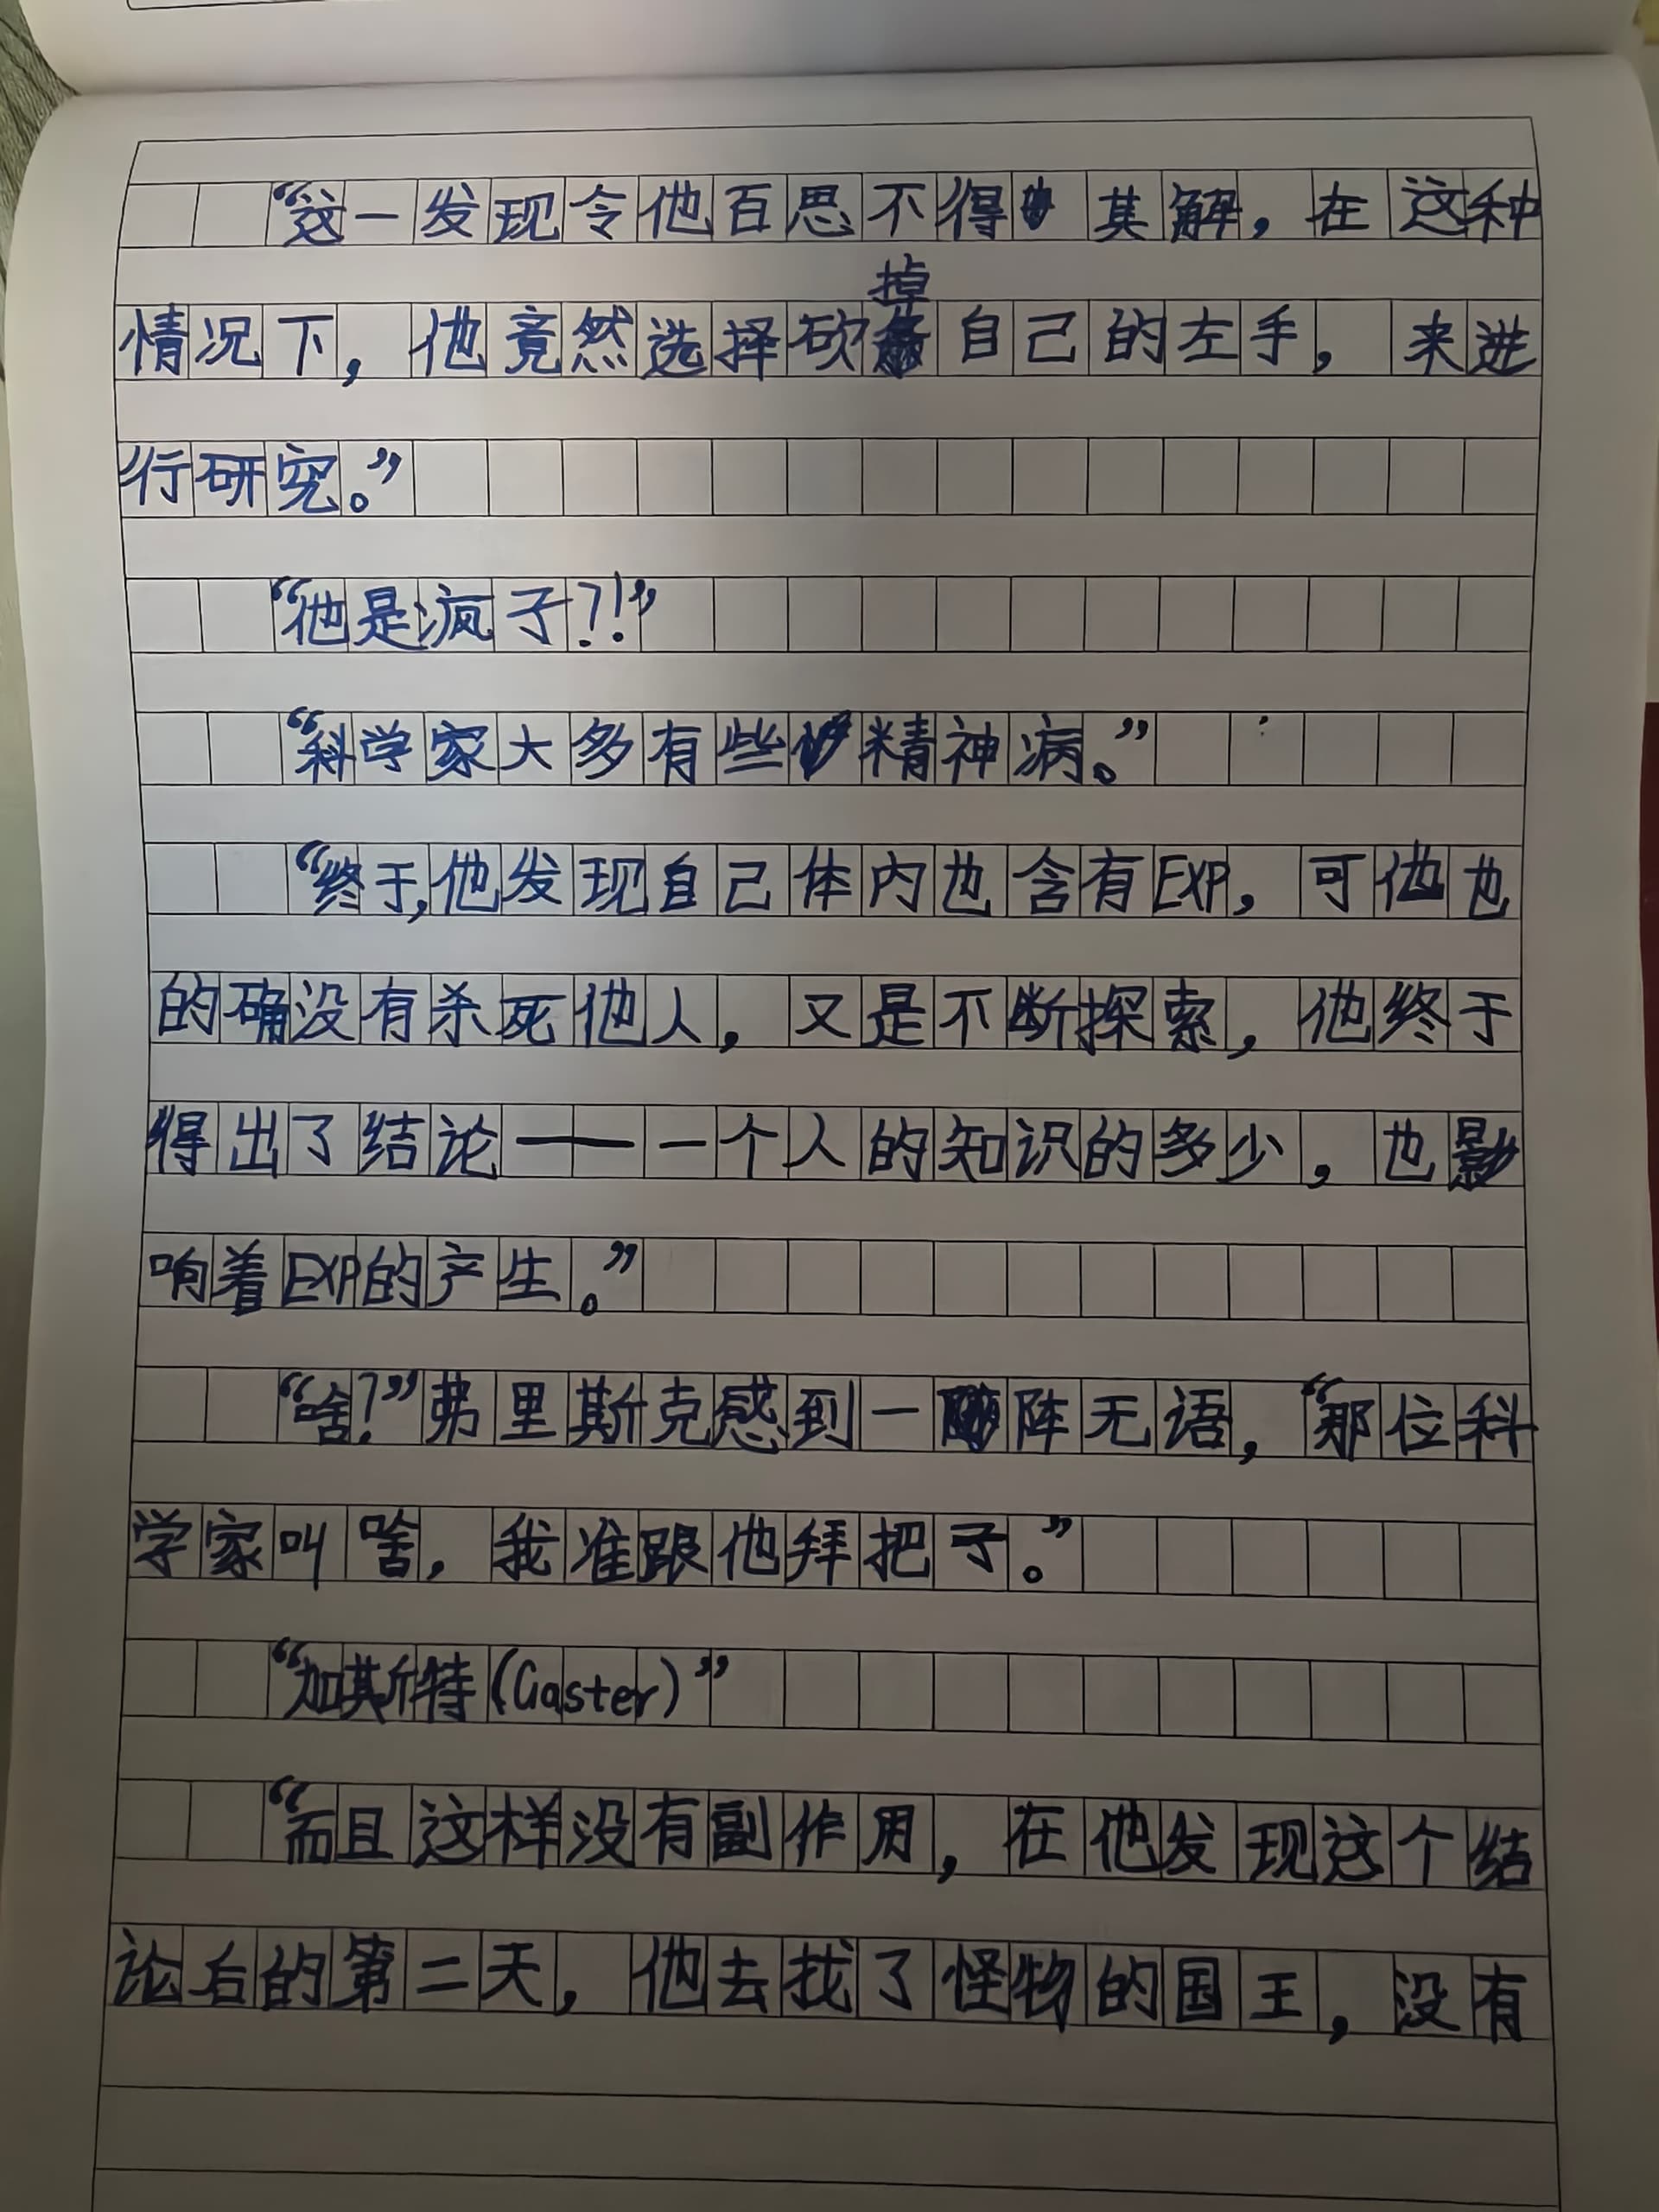 “这一发现令他百思不得其解，在这种
情况下，他竟然选择砍掉自己的左手，来进
行研究。”
“他是疯子?!”
“科学家大多有些精神病。”
“终于,他发现自己体内也含有EXP，可他也
的确没有杀死他人，又是不断探索，他终于
得出了结论——一个人的知识的多少，也影
响着EXP的产生。”
“啥?”弗里斯克感到一阵无语，“那位科
学家叫啥，我准跟他拜把子。”
“加斯特(Gaster)”
“而且这样没有副作用，在他发现这个结
论后的第二天，他去找了怪物的国王，没有